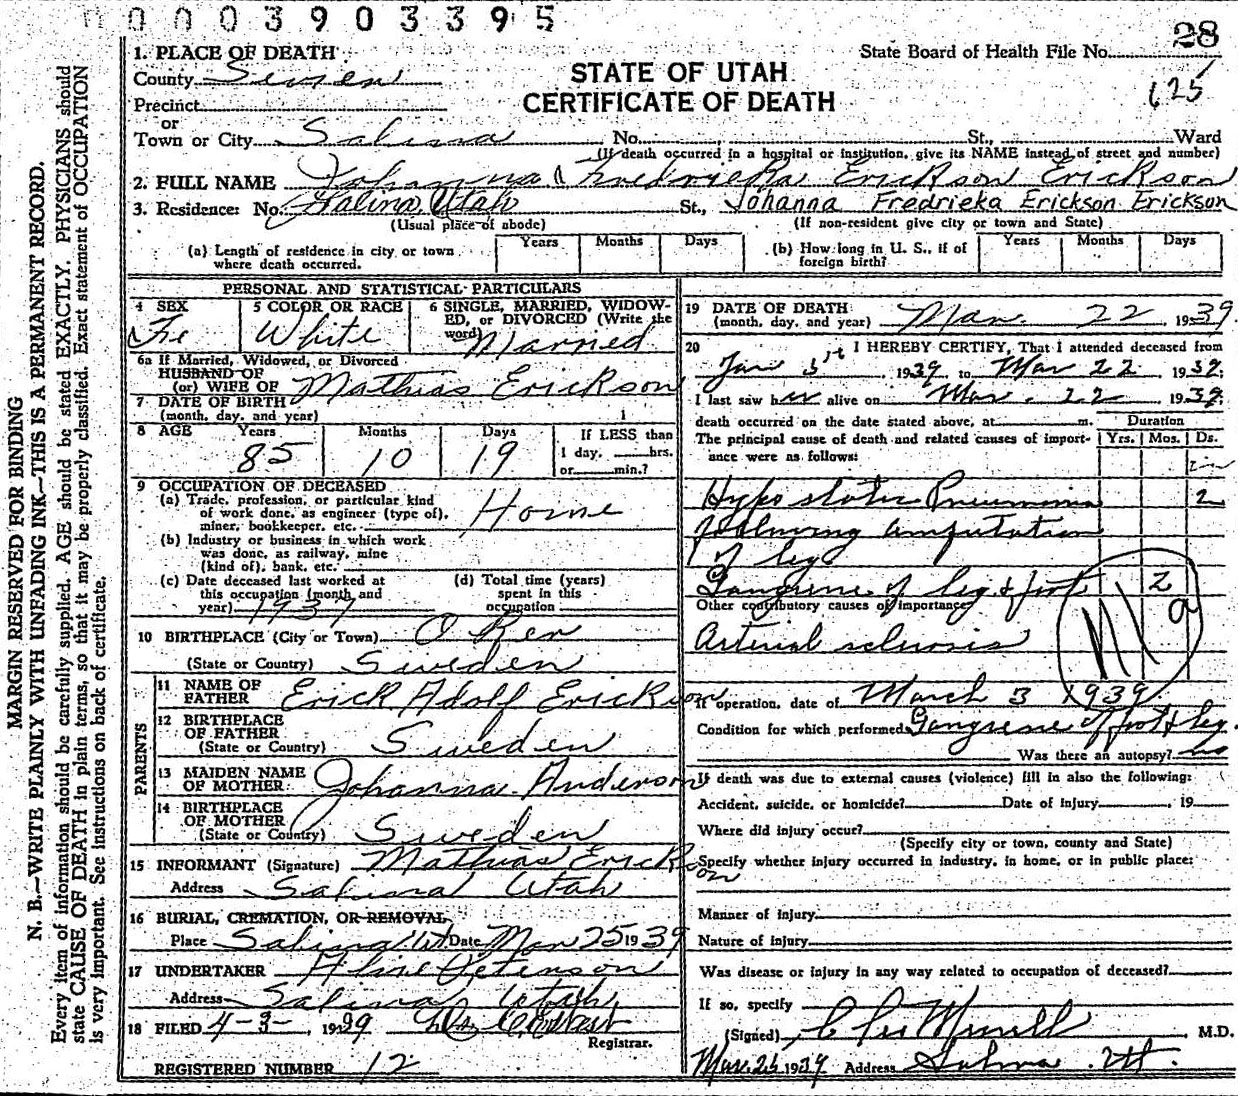 0003903395
28
1. PLACE OF DEATH
State Board of Health File No.
County Sevier
STATE OF UTAH
125
Precinct
CERTIFICATE OF DEATH
or
Town or City Salina No. St., Ward
(If death occurred in a hospital or institution, give its NAME instead of street and number)
2. FULL NAME Johanna Fredrieka Erickson Erickson
3. Residence: No. Salina Utah St., Johanna Fredrieka Erickson Erickson
(Usual place of abode) (If non-resident give city or town and State)
(a) Length of residence in city or town where death occurred. Years Months Days
(b) How long in U. S., if of foreign birth? Years Months Days
PERSONAL AND STATISTICAL PARTICULARS
4 SEX Fe
5 COLOR OR RACE White
6 SINGLE, MARRIED, WIDOWED, or DIVORCED (Write the word) Married
6a If Married, Widowed, or Divorced
HUSBAND OF
(or) WIFE OF Mathias Erickson
7 DATE OF BIRTH
(month, day, and year)
8 AGE Years 85 Months 10 Days 19
If LESS than 1 day, hrs. or min.?
9 OCCUPATION OF DECEASED
(a) Trade, profession, or particular kind of work done, as engineer (type of), miner, bookkeeper, etc. Home
(b) Industry or business in which work was done, as railway, mine (kind of), bank, etc.
(c) Date deceased last worked at this occupation (month and year) 1937
(d) Total time (years) spent in this occupation
10 BIRTHPLACE (City or Town)
(State or Country) Sweden
PARENTS
11 NAME OF FATHER Erick Adolf Erickson
12 BIRTHPLACE OF FATHER
(State or Country) Sweden
13 MAIDEN NAME OF MOTHER Johanna Anderson
14 BIRTHPLACE OF MOTHER
(State or Country) Sweden
15 INFORMANT (Signature) Mathias Erickson
Address Salina Utah
16 BURIAL, CREMATION, OR REMOVAL,
Place Salina Ut Date Mar 25 1939
17 UNDERTAKER Peterson
Address Salina Utah
18 FILED 4-3-, 1939
Registrar.
REGISTERED NUMBER 12
19 DATE OF DEATH
(month, day, and year) Mar. 22, 1939.
20 I HEREBY CERTIFY, That I attended deceased from
Jan 3 1939 to Mar 22 1939;
I last saw her alive on Mar. 22 1939;
death occurred on the date stated above, at m. Duration
The principal cause of death and related causes of importance were as follows: Yrs. Mos. Ds.
Hypostatic Pneumonia 2
following amputation
of leg
Gangrene of leg & foot
Other contributory causes of importance
Arterial sclerosis
If operation, date of March 3 1939
Condition for which performed Gangrene of foot & leg.
Was there an autopsy? no
If death was due to external causes (violence) fill in also the following:
Accident, suicide, or homicide? Date of injury, 19
Where did injury occur?
(Specify city or town, county and State)
Specify whether injury occurred in industry, in home, or in public place:
Manner of injury
Nature of injury
Was disease or injury in any way related to occupation of deceased?
If so, specify
(Signed) M.D.
Mar. 25 1939 Address Salina Ut.
MARGIN RESERVED FOR BINDING
N. B.—WRITE PLAINLY WITH UNFADING INK—THIS IS A PERMANENT RECORD.
Every item of information should be carefully supplied. AGE should be stated EXACTLY. PHYSICIANS should
state CAUSE OF DEATH in plain terms, so that it may be properly classified. Exact statement of OCCUPATION
is very important. See instructions on back of certificate.